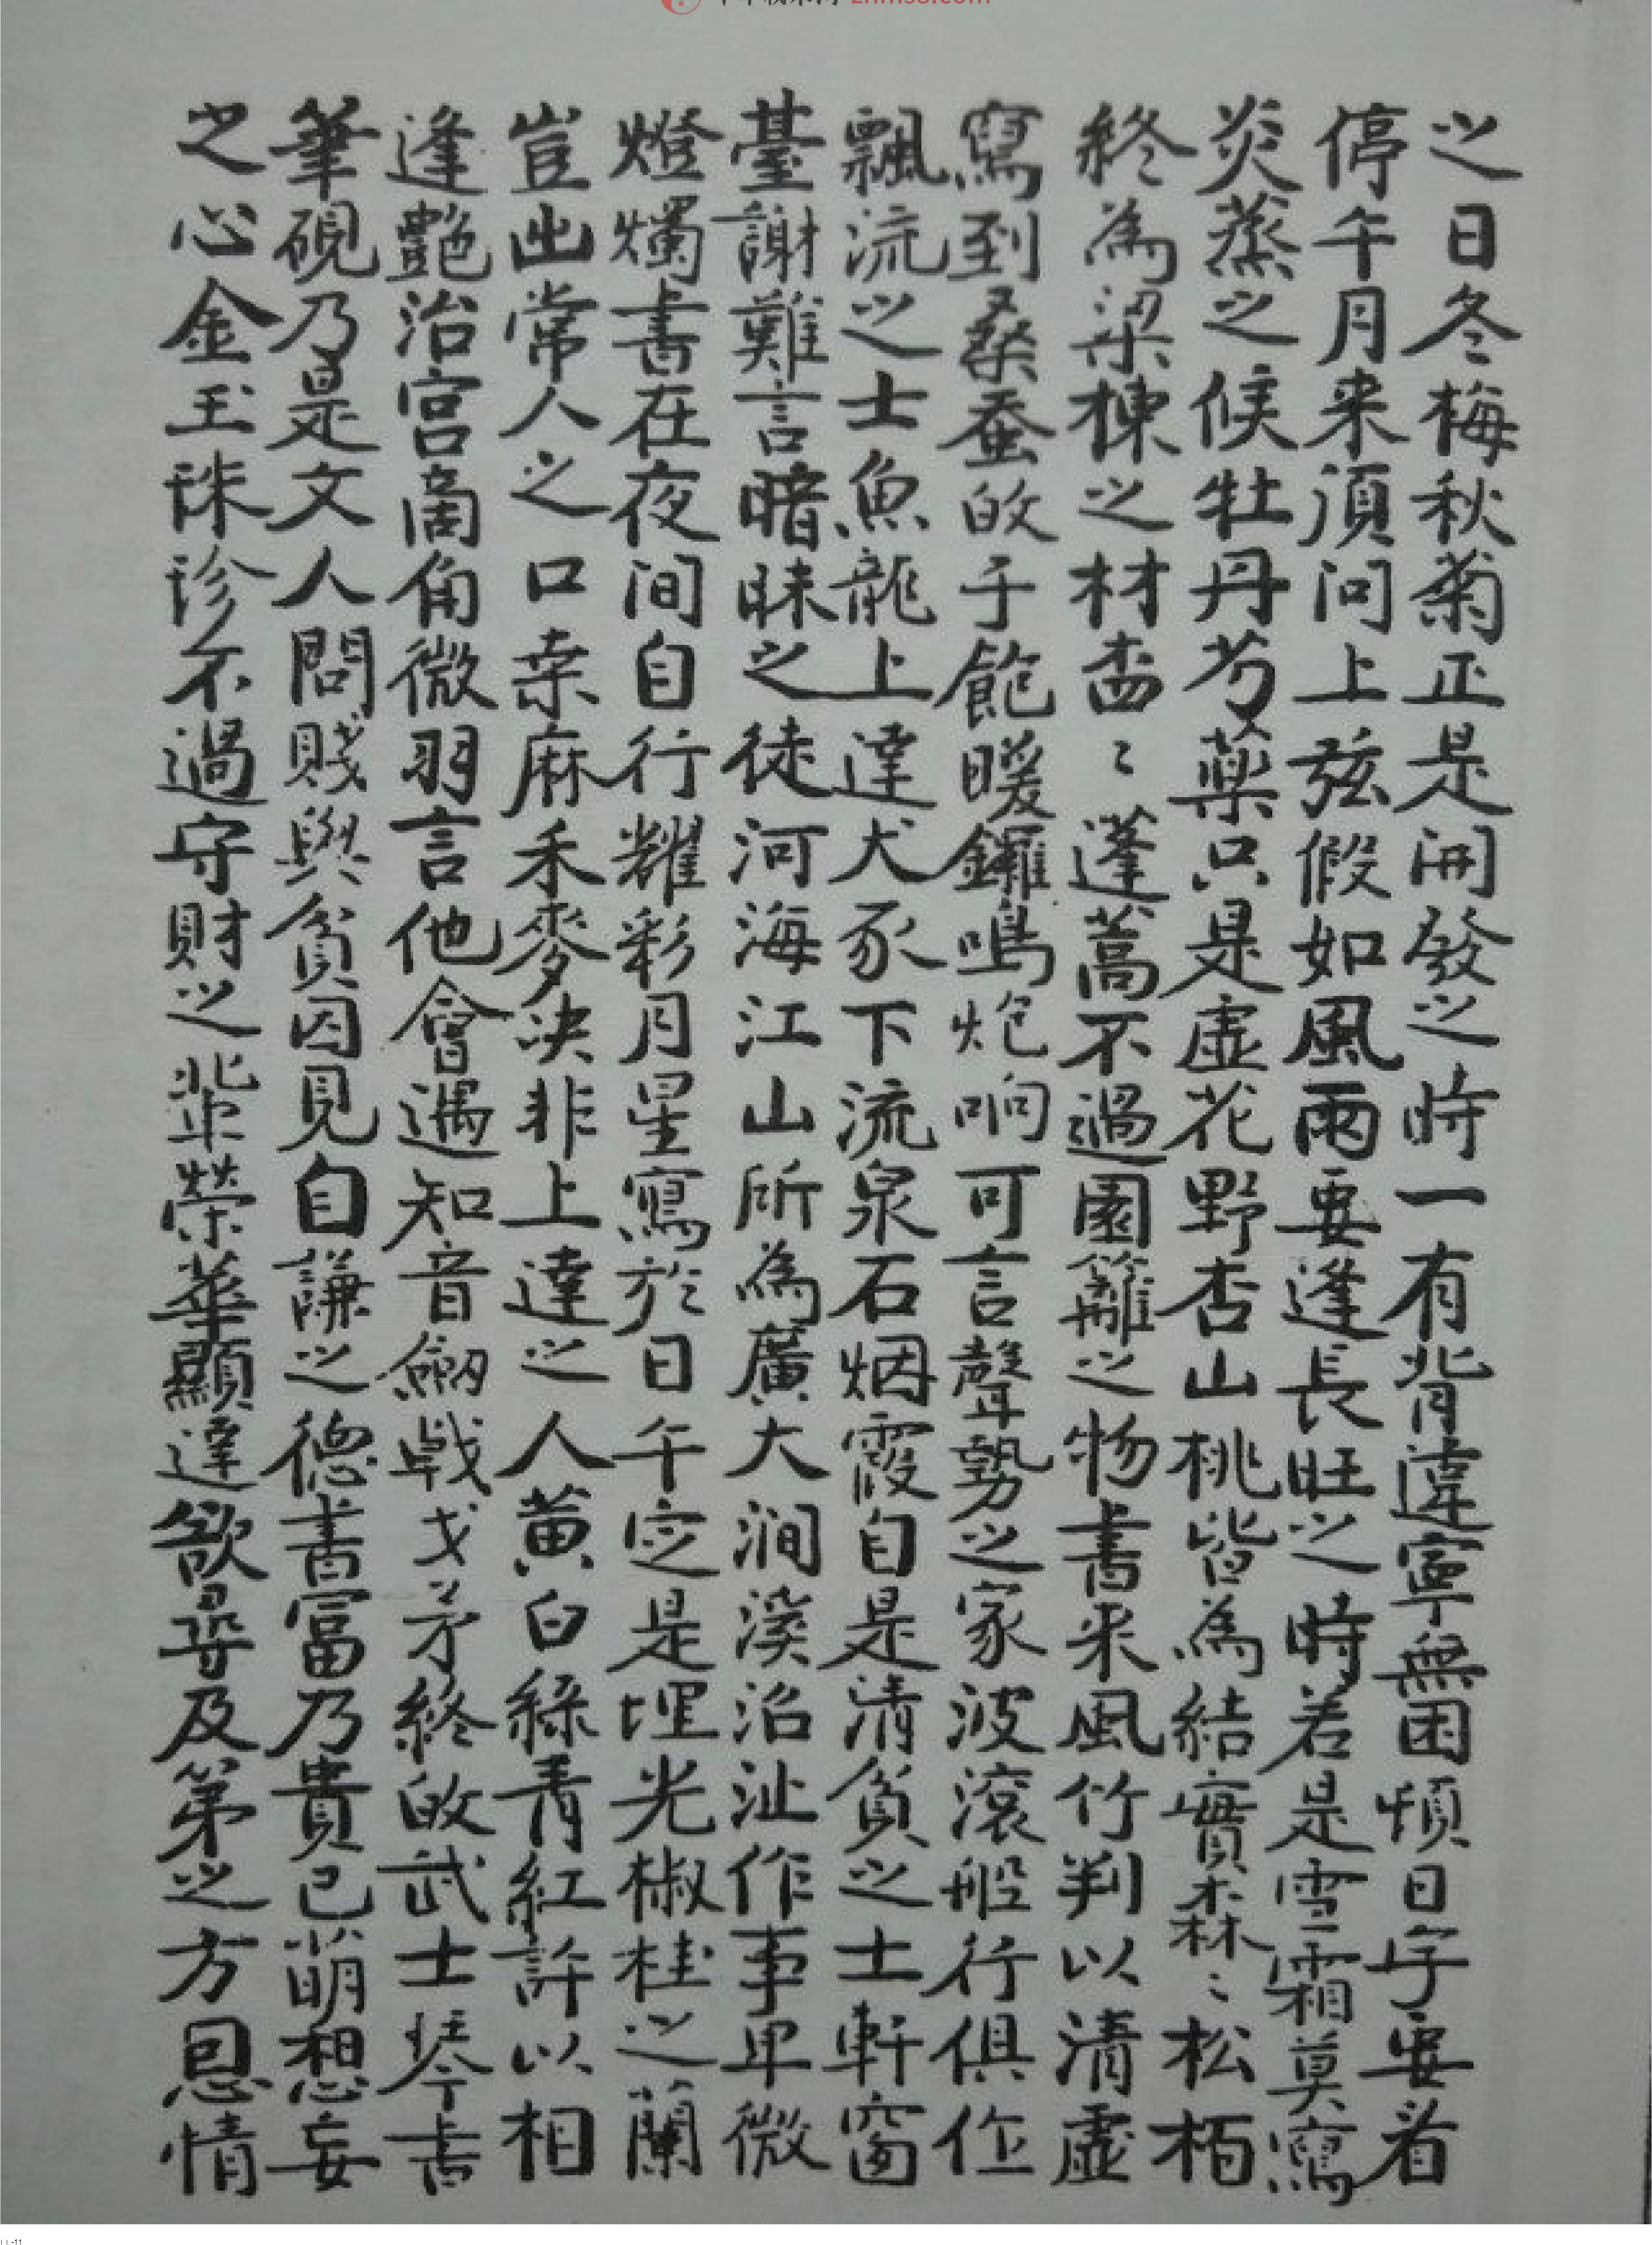 之日冬梅秋菊正是開發之時一有背違寧無困煩日字要看
停午月来須问上弦假如風雨要逢長旺之時若是雪霜莫寫
炎蒸之候牡丹芍藥只是虛花野杏山桃皆為結實森森〻松栢
終為梁棟之材䓊〻蓬蒿不過園籬之物書来風竹判以清虛
寫到桑蚕的于飽暖鑼鳴炮响可言聲勢之家波滚船行俱作
飄流之士魚龍上達犬豕下流泉石烟霞自是清貧之士軒窗
臺謝難言暗昧之徒河海江山所為廣大涧溪沼沚作事卑微
燈燭書在夜间自行耀彩月星寫於日午定是埋光椒桂之蘭
豈出常人之口桒麻禾麥决非上達之人黄白綠青紅許以相
逢艷治宫商角微羽言他會遇知音劔戟戈矛終的武士琴书
筆硯乃是文人問賤與貧因見自謙之德書富乃貴已萌想妄
之心金玉珠珍不過守財之輩榮華顯達欲尋及第之方恩情